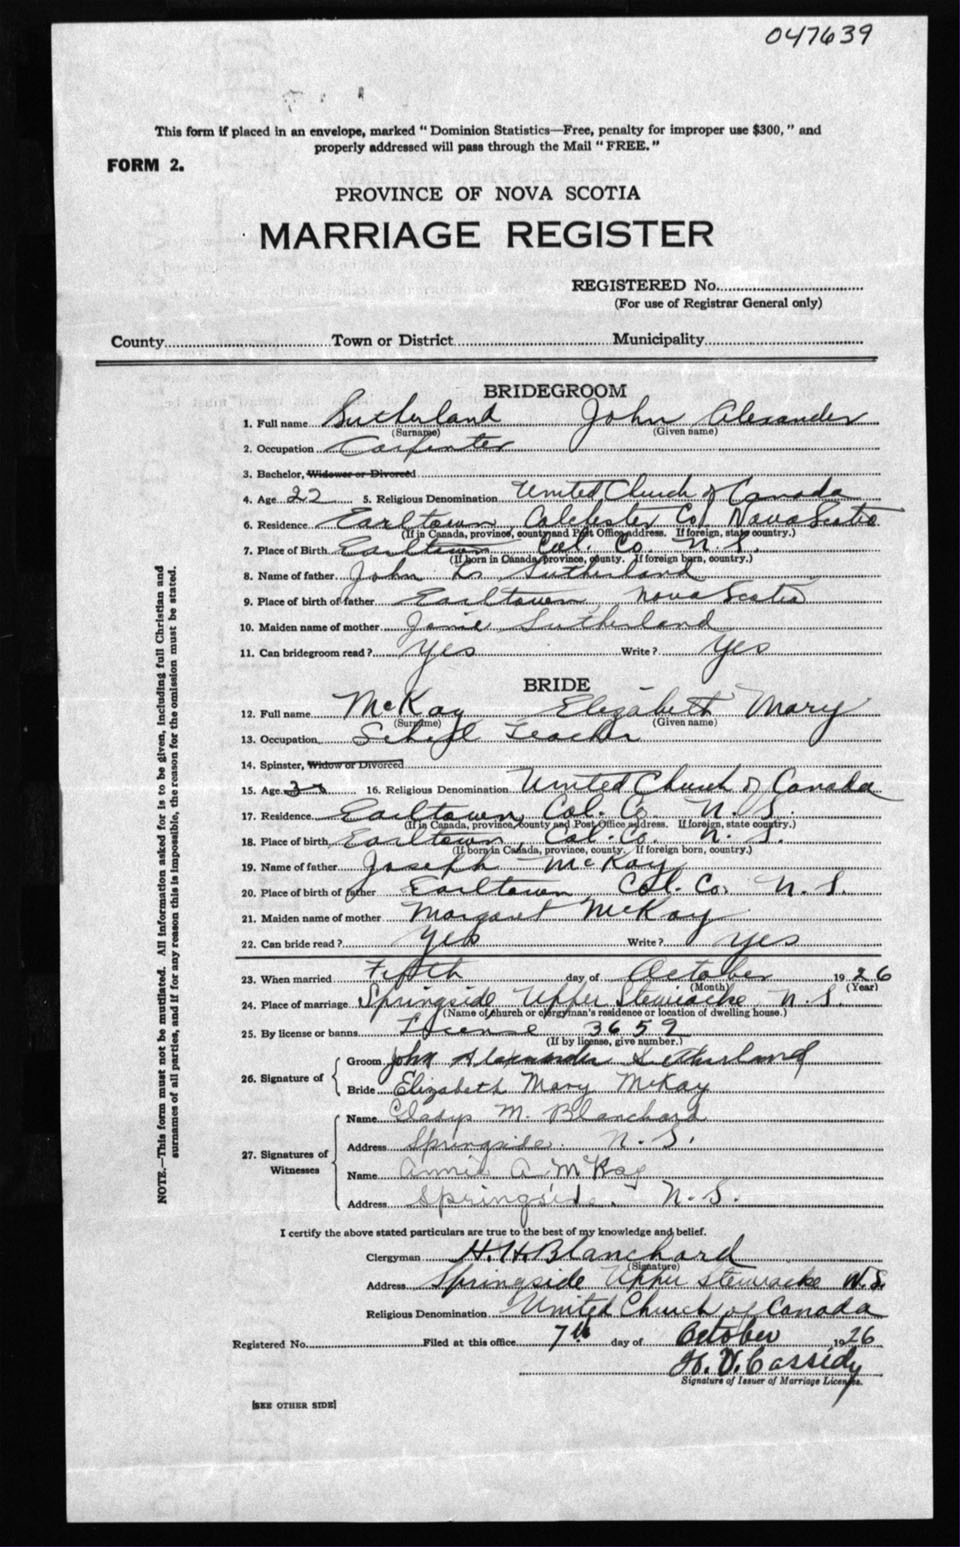 047639
This form if placed in an envelope, marked "Dominion Statistics—Free, penalty for improper use $300," and
properly addressed will pass through the Mail "FREE."
FORM 2.
PROVINCE OF NOVA SCOTIA
MARRIAGE REGISTER
REGISTERED No.
(For use of Registrar General only)
County Town or District Municipality
BRIDEGROOM
1. Full name Sutherland John Alexander
(Surname) (Given name)
2. Occupation Carpenter
3. Bachelor, Widower or Divorced
4. Age 22 5. Religious Denomination United Church of Canada
6. Residence Earltown, Colchester Co. Nova Scotia
(If in Canada, province, county and Post Office address. If foreign, state country.)
7. Place of Birth Earltown Col. Co. N.S.
(If born in Canada, province, county. If foreign born, country.)
8. Name of father John Sutherland
9. Place of birth of father Earltown, Nova Scotia
10. Maiden name of mother Janie Sutherland
11. Can bridegroom read? Yes Write? Yes
BRIDE
12. Full name McKay Elizabeth Mary
(Surname) (Given name)
13. Occupation School Teacher
14. Spinster, Widow or Divorced
15. Age 16. Religious Denomination United Church of Canada
17. Residence Earltown, Col. Co. N.S.
(If in Canada, province, county and Post Office address. If foreign, state country.)
18. Place of birth Earltown, Col. Co. N.S.
(If born in Canada, province, county. If foreign born, country.)
19. Name of father Joseph McKay
20. Place of birth of father Earltown Col. Co. N.S.
21. Maiden name of mother Margaret McKay
22. Can bride read? Yes Write? Yes
23. When married Fifth day of October 1926
(Month) (Year)
24. Place of marriage Springside Upper Stewiacke, N.S.
(Name of church or clergyman's residence or location of dwelling house.)
25. By license or banns License 3659
(If by license, give number.)
26. Signature of Groom John Alexander Sutherland
Bride Elizabeth Mary McKay
27. Signatures of Witnesses Name Gladys M. Blanchard
Address Springside. N.S.
Name Annie A. McKay
Address Springside. N.S.
I certify the above stated particulars are true to the best of my knowledge and belief.
Clergyman H. H. Blanchard
(Signature)
Address Springside Upper Stewiacke N.S.
Religious Denomination United Church of Canada
Registered No. Filed at this office 7th day of October 1926
H. V. Cassidy
Signature of Issuer of Marriage Licenses.
[SEE OTHER SIDE]
NOTE.—This form must not be mutilated. All information asked for is to be given, including full Christian and
surnames of all parties, and if for any reason this is impossible, the reason for the omission must be stated.